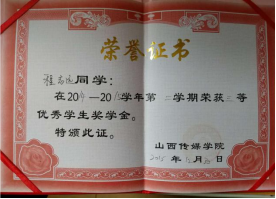 荣誉证书
同学：
在20 —20 学年第二学期荣获三等
优秀学生奖学金。
特颁此证。
山西传媒学院
2015年 月 日